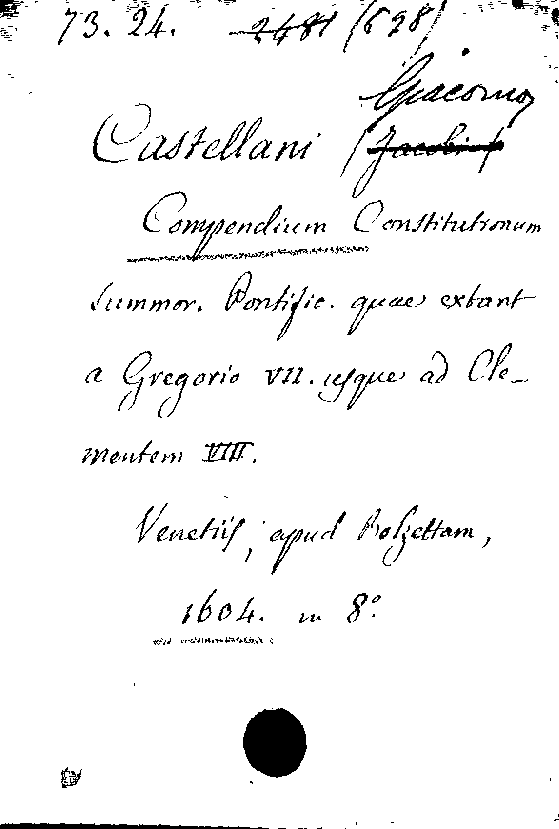 73. 24. 2481 (628)
Giacomo
Castellani (Jacobi)
Compendium Constitutionum
summor. Pontific. quae extant
a Gregorio VII. usque ad Cle-
mentem VIII.
Venetiis, apud Bolzettam,
1604. in 8°.